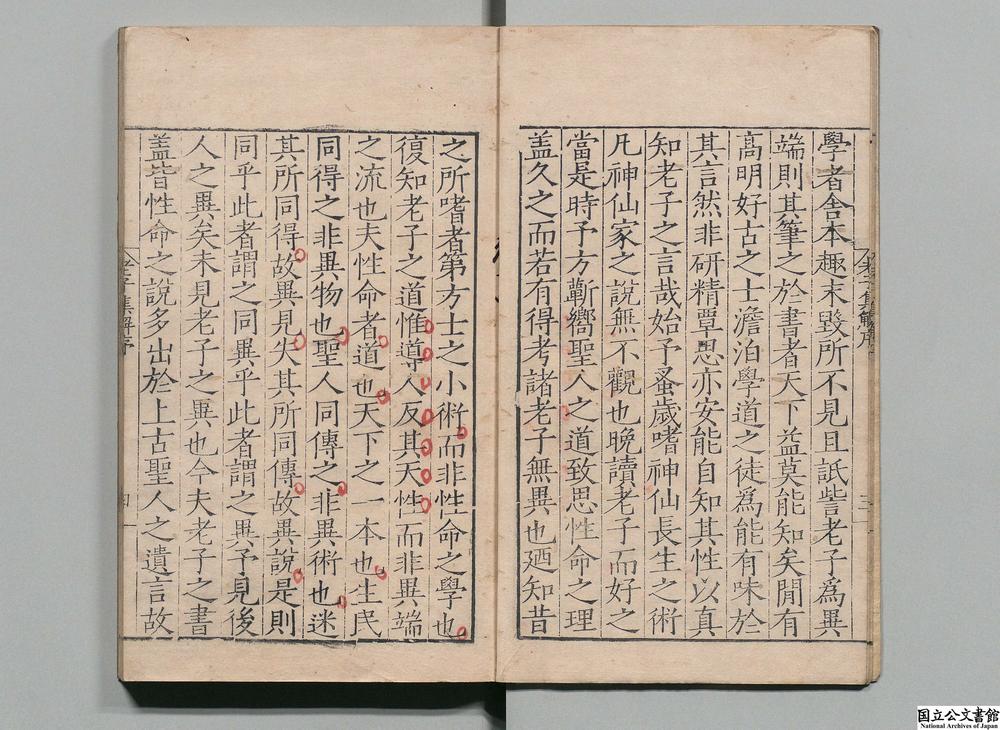 學者舎本趣末毀所不見且詆訾老子爲異
端則其筆之於書者天下益莫能知矣閒有
髙明好古之士澹泊學道之徒爲能有味於
其言然非研精覃思亦安能自知其性以真
知老子之言哉始予蚤歲嗜神仙長生之術
凡神仙家之說無不觀也晚讀老子而好之
當是時予方蘄嚮聖人之道致思性命之理
盖久之而若有得考諸老子無異也廼知昔
之所嗜者第方士之小術而非性命之學也
復知老子之道惟導人反其天性而非異端
之流也夫性命者道也天下之一本也生民
同得之非異物也聖人同傳之非異術也迷
其所同得故異見失其所同傳故異說是則
同乎此者謂之同異乎此者謂之異予見後
人之異矣未見老子之異也今夫老子之書
盖皆性命之說多出於上古聖人之遺言故
老子集解序
三
老子集解序
四
国立公文書館
National Archives of Japan